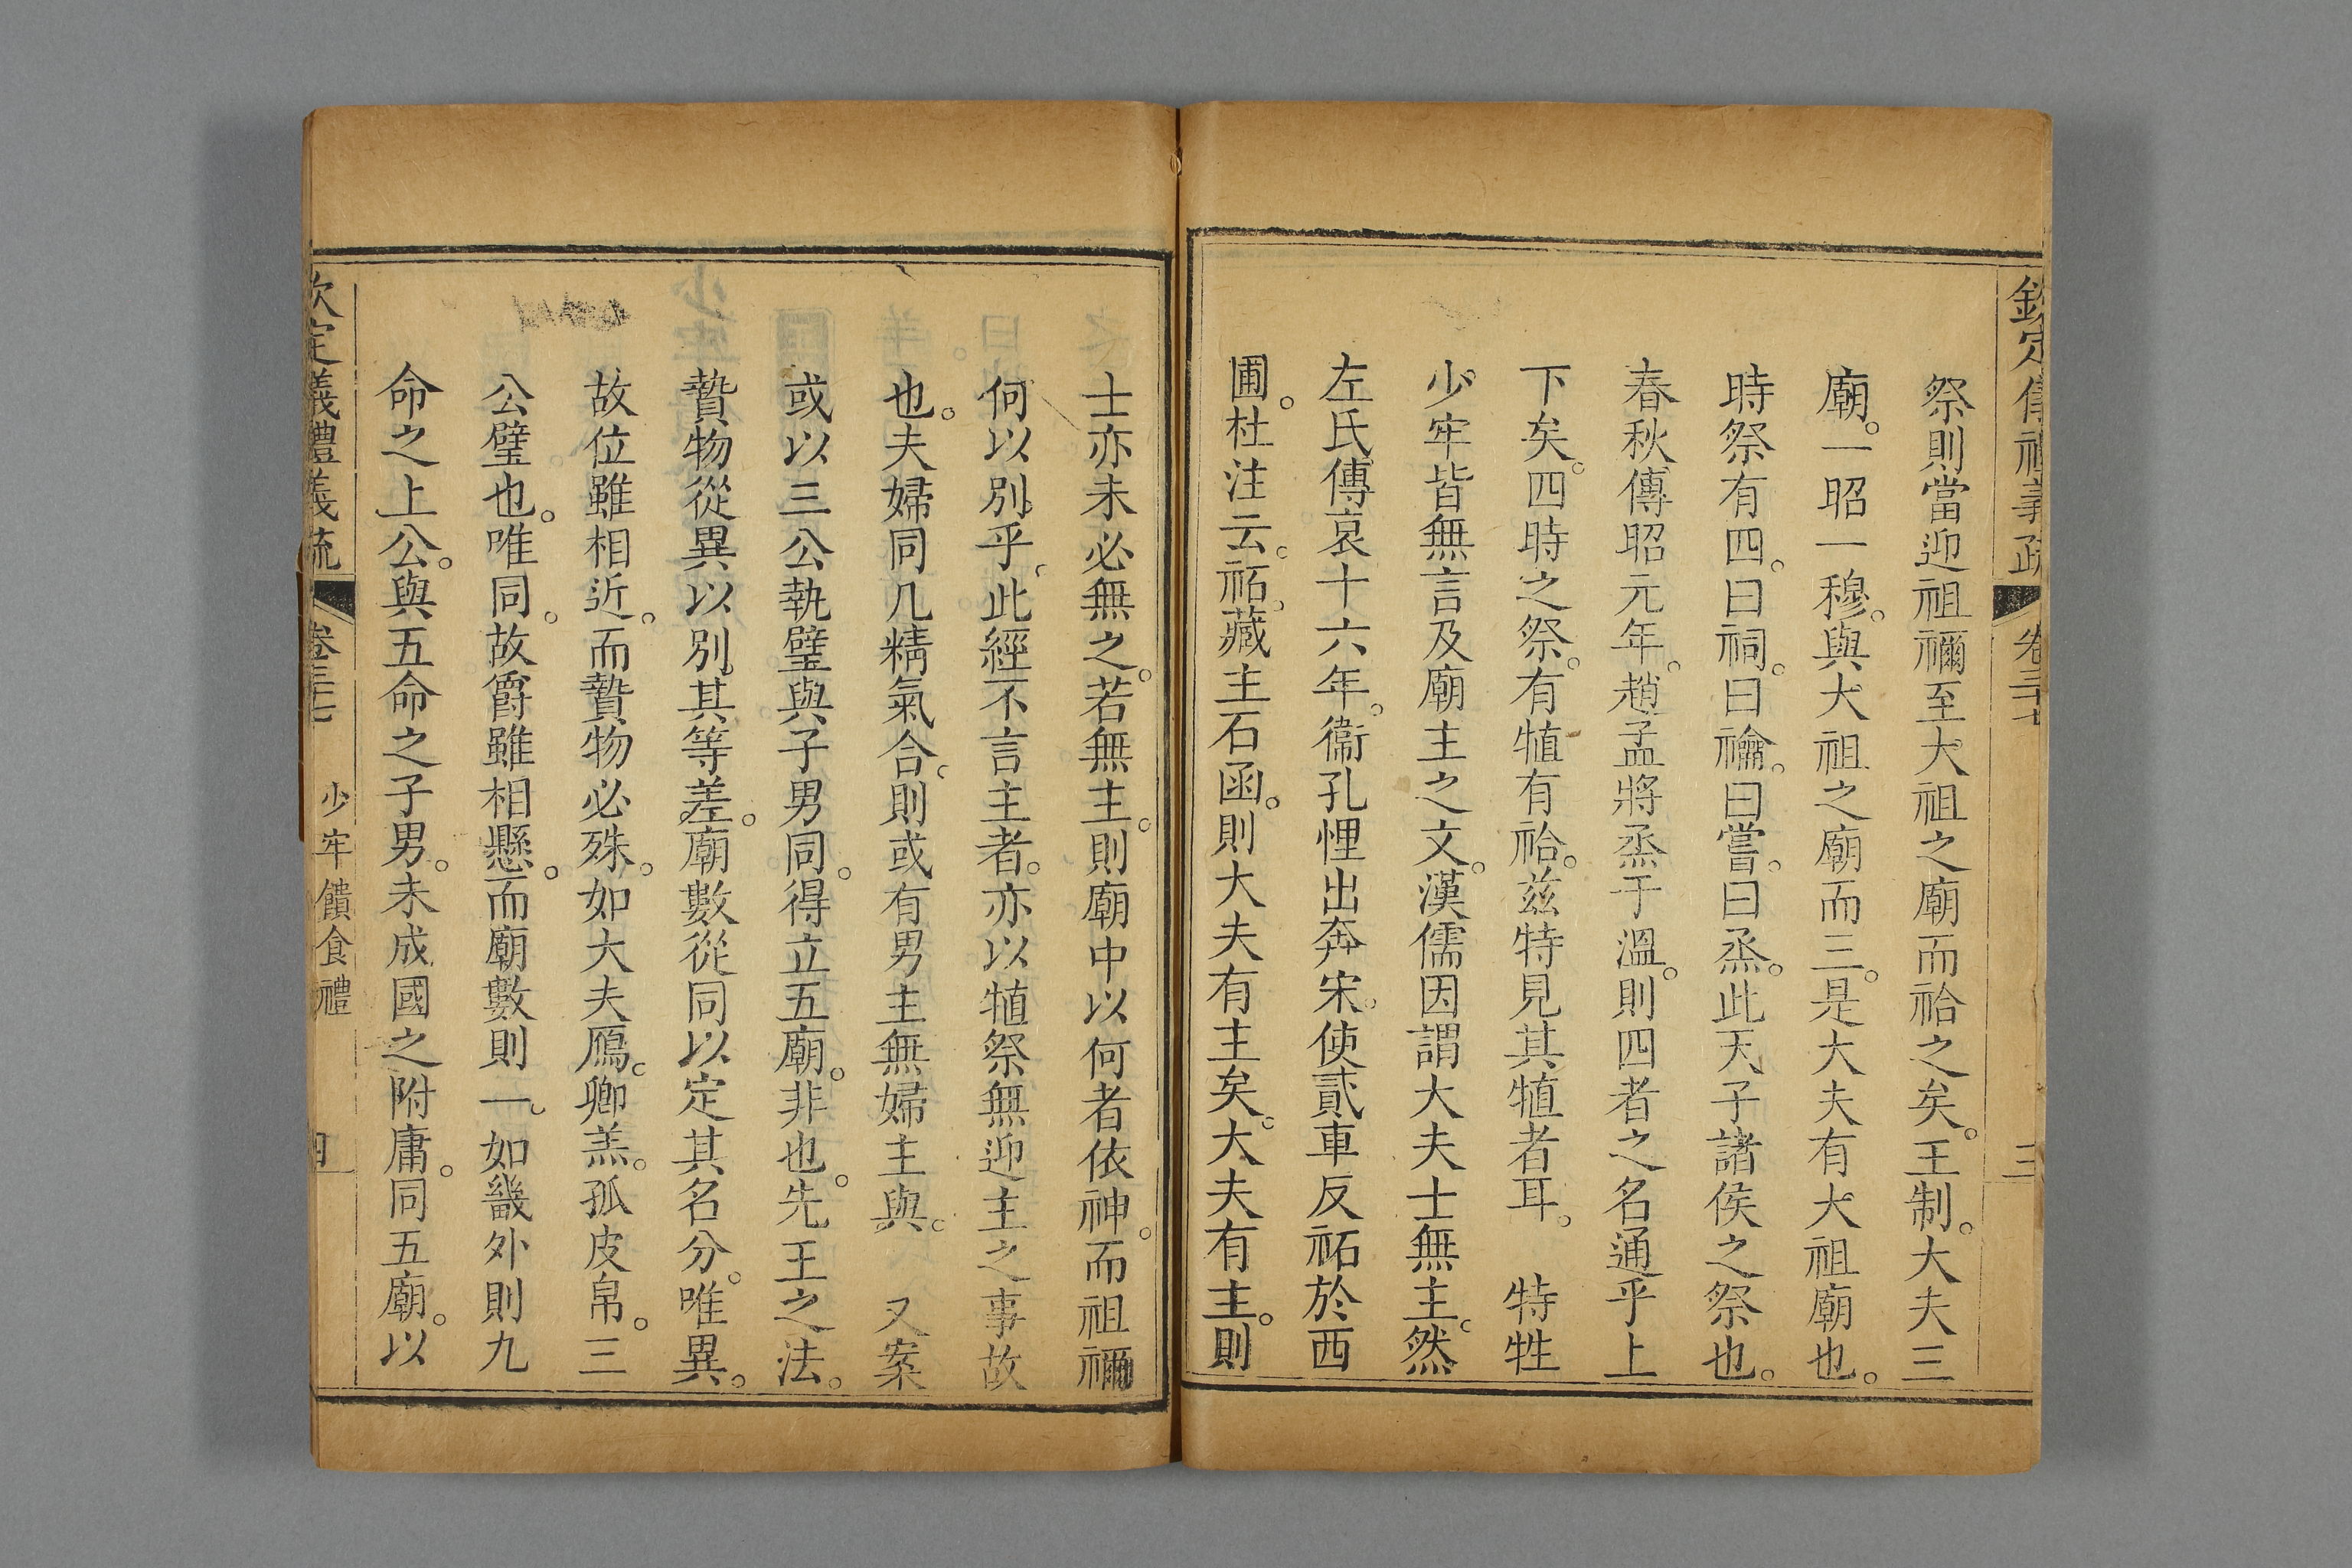 欽定儀禮義疏 卷三十七 三
祭則當迎祖禰至大祖之廟而祫之矣。王制。大夫三
廟。一昭一穆。與大祖之廟而三。是大夫有大祖廟也。
時祭有四。曰祠。曰禴。曰嘗。曰烝。此天子諸侯之祭也。
春秋傳昭元年。趙孟將烝于溫。則四者之名通乎上
下矣。四時之祭。有犆有祫。兹特見其犆者耳。 特牲
少牢皆無言及廟主之文。漢儒因謂大夫士無主。然
左氏傳哀十六年。衞孔悝出奔宋。使貳車反祏於西
圃。杜注云。祏。藏主石函。則大夫有主矣。大夫有主。則
士亦未必無之。若無主。則廟中以何者依神。而祖禰
何以別乎。此經不言主者。亦以犆祭無迎主之事故
也。夫婦同几精氣合。則或有男主無婦主與。 又案
或以三公執璧與子男同。得立五廟。非也。先王之法。
贄物從異以別其等差。廟數從同以定其名分。唯異。
故位雖相近。而贄物必殊。如大夫鴈。卿羔。孤皮帛。三
公璧也。唯同。故爵雖相懸。而廟數則一。如畿外則九
命之上公。與五命之子男。未成國之附庸。同五廟。以
欽定儀禮義疏 卷三十七 少牢饋食禮 四